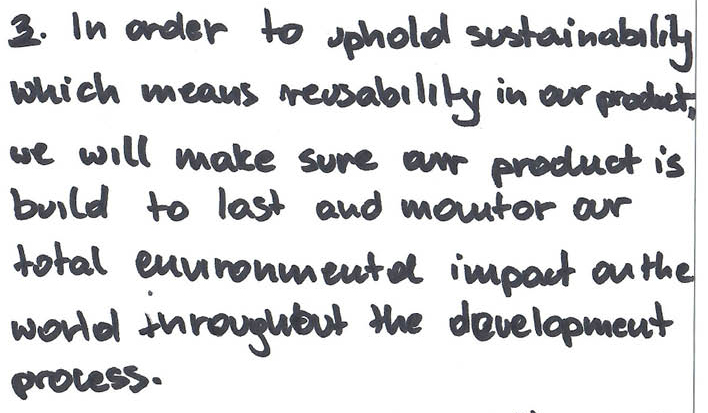 3. In order to uphold sustainability
which means reusability in our product,
we will make sure our product is
build to last and monitor our
total environmental impact on the
world throughout the development
process.